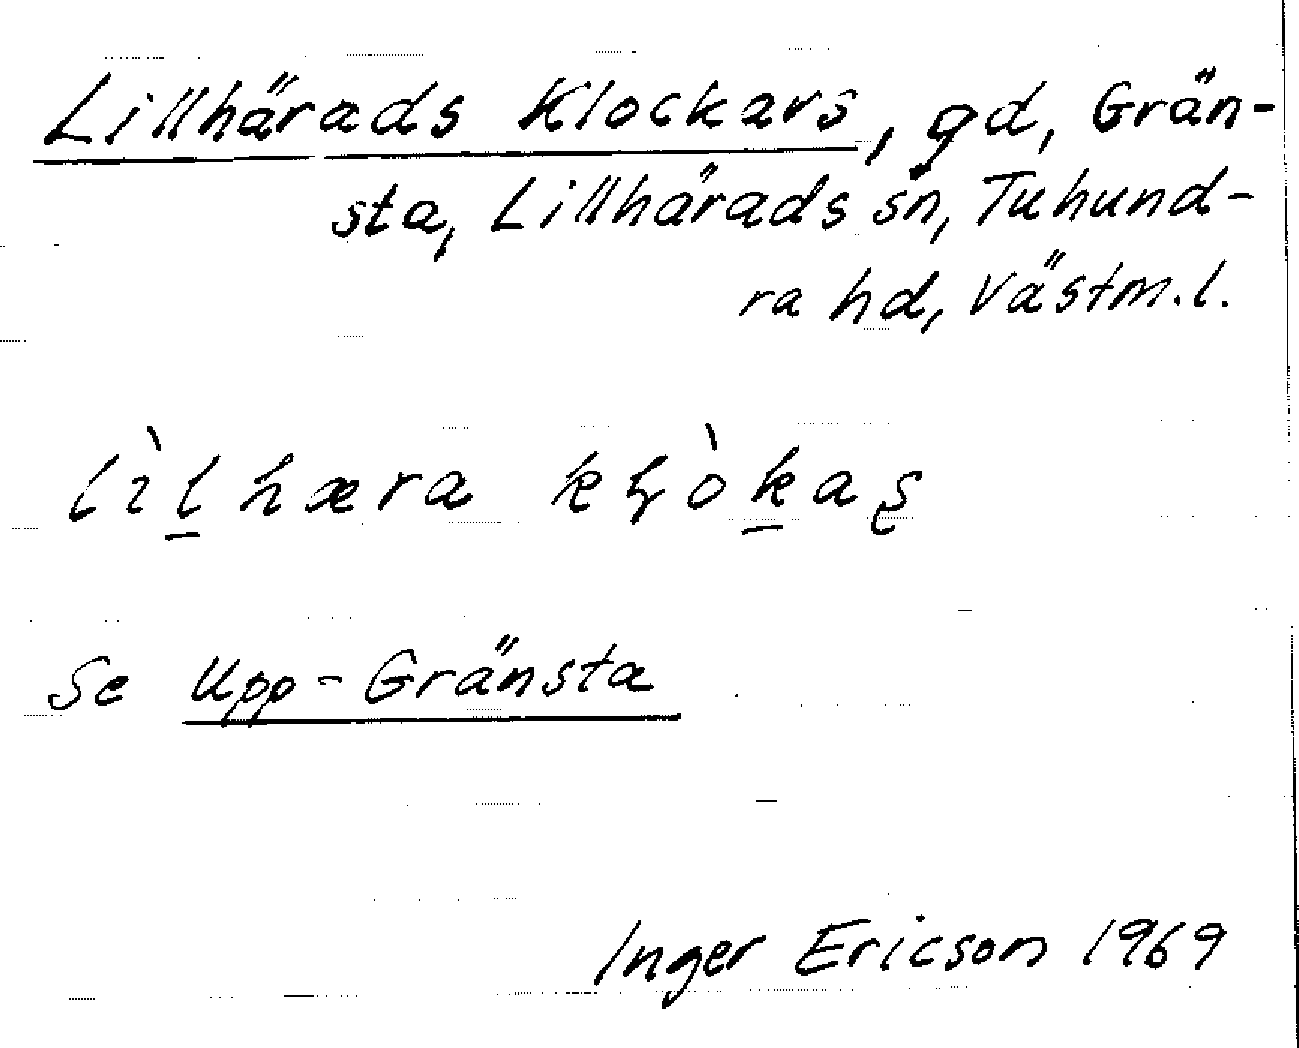 Lillhärads Klockars, gd, Grän-
sta, Lillhärads sn, Tuhund-
ra hd, Västm.l.
lìḻhæra kɽòḵaʂ
Se Upp-Gränsta
Inger Ericson 1969